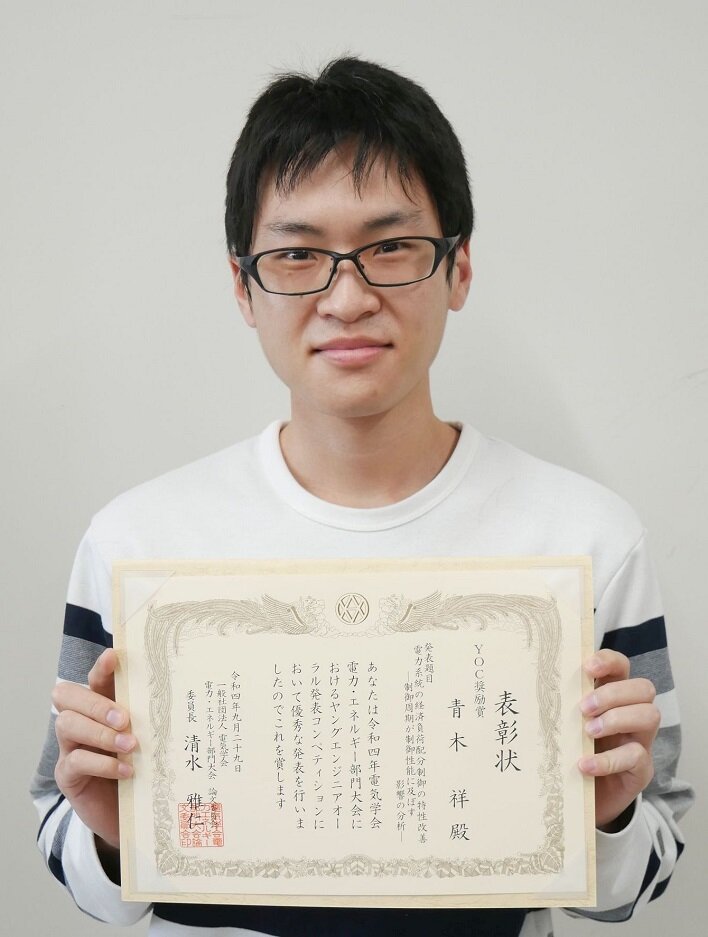 表彰状
YOC奨励賞
青木 祥 殿
発表題目
電力系統の経済負荷配分制御の特性改善
―制御周期が制御性能に及ぼす
影響の分析―
あなたは令和四年電気学会
電力・エネルギー部門大会に
おけるヤングエンジニアオー
ラル発表コンペティションに
おいて優秀な発表を行いま
したのでこれを賞します
令和四年九月二十九日
一般社団法人 電気学会
電力・エネルギー部門大会 論文
委員長 清水 雅仁